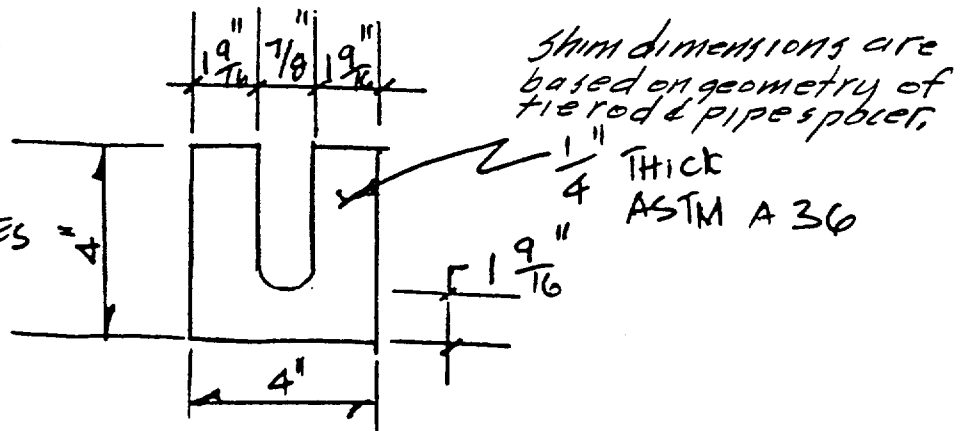 1 9/16" 7/8" 1 9/16"
shim dimensions are
based on geometry of
tie rod & pipe spacer.
1/4" THICK
ASTM A 36
ES
4"
1 9/16"
4"